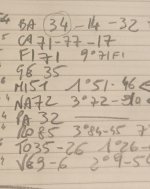 BA 34-14-32
CA 71-77-17
FI 71 9°71FI
GE 35
MI 51 1°51-46
NA 72 3°72-90
PA 32
RO 85 3°84-45
TO 35-26 1°26-
V€ 69-6 2°9-5